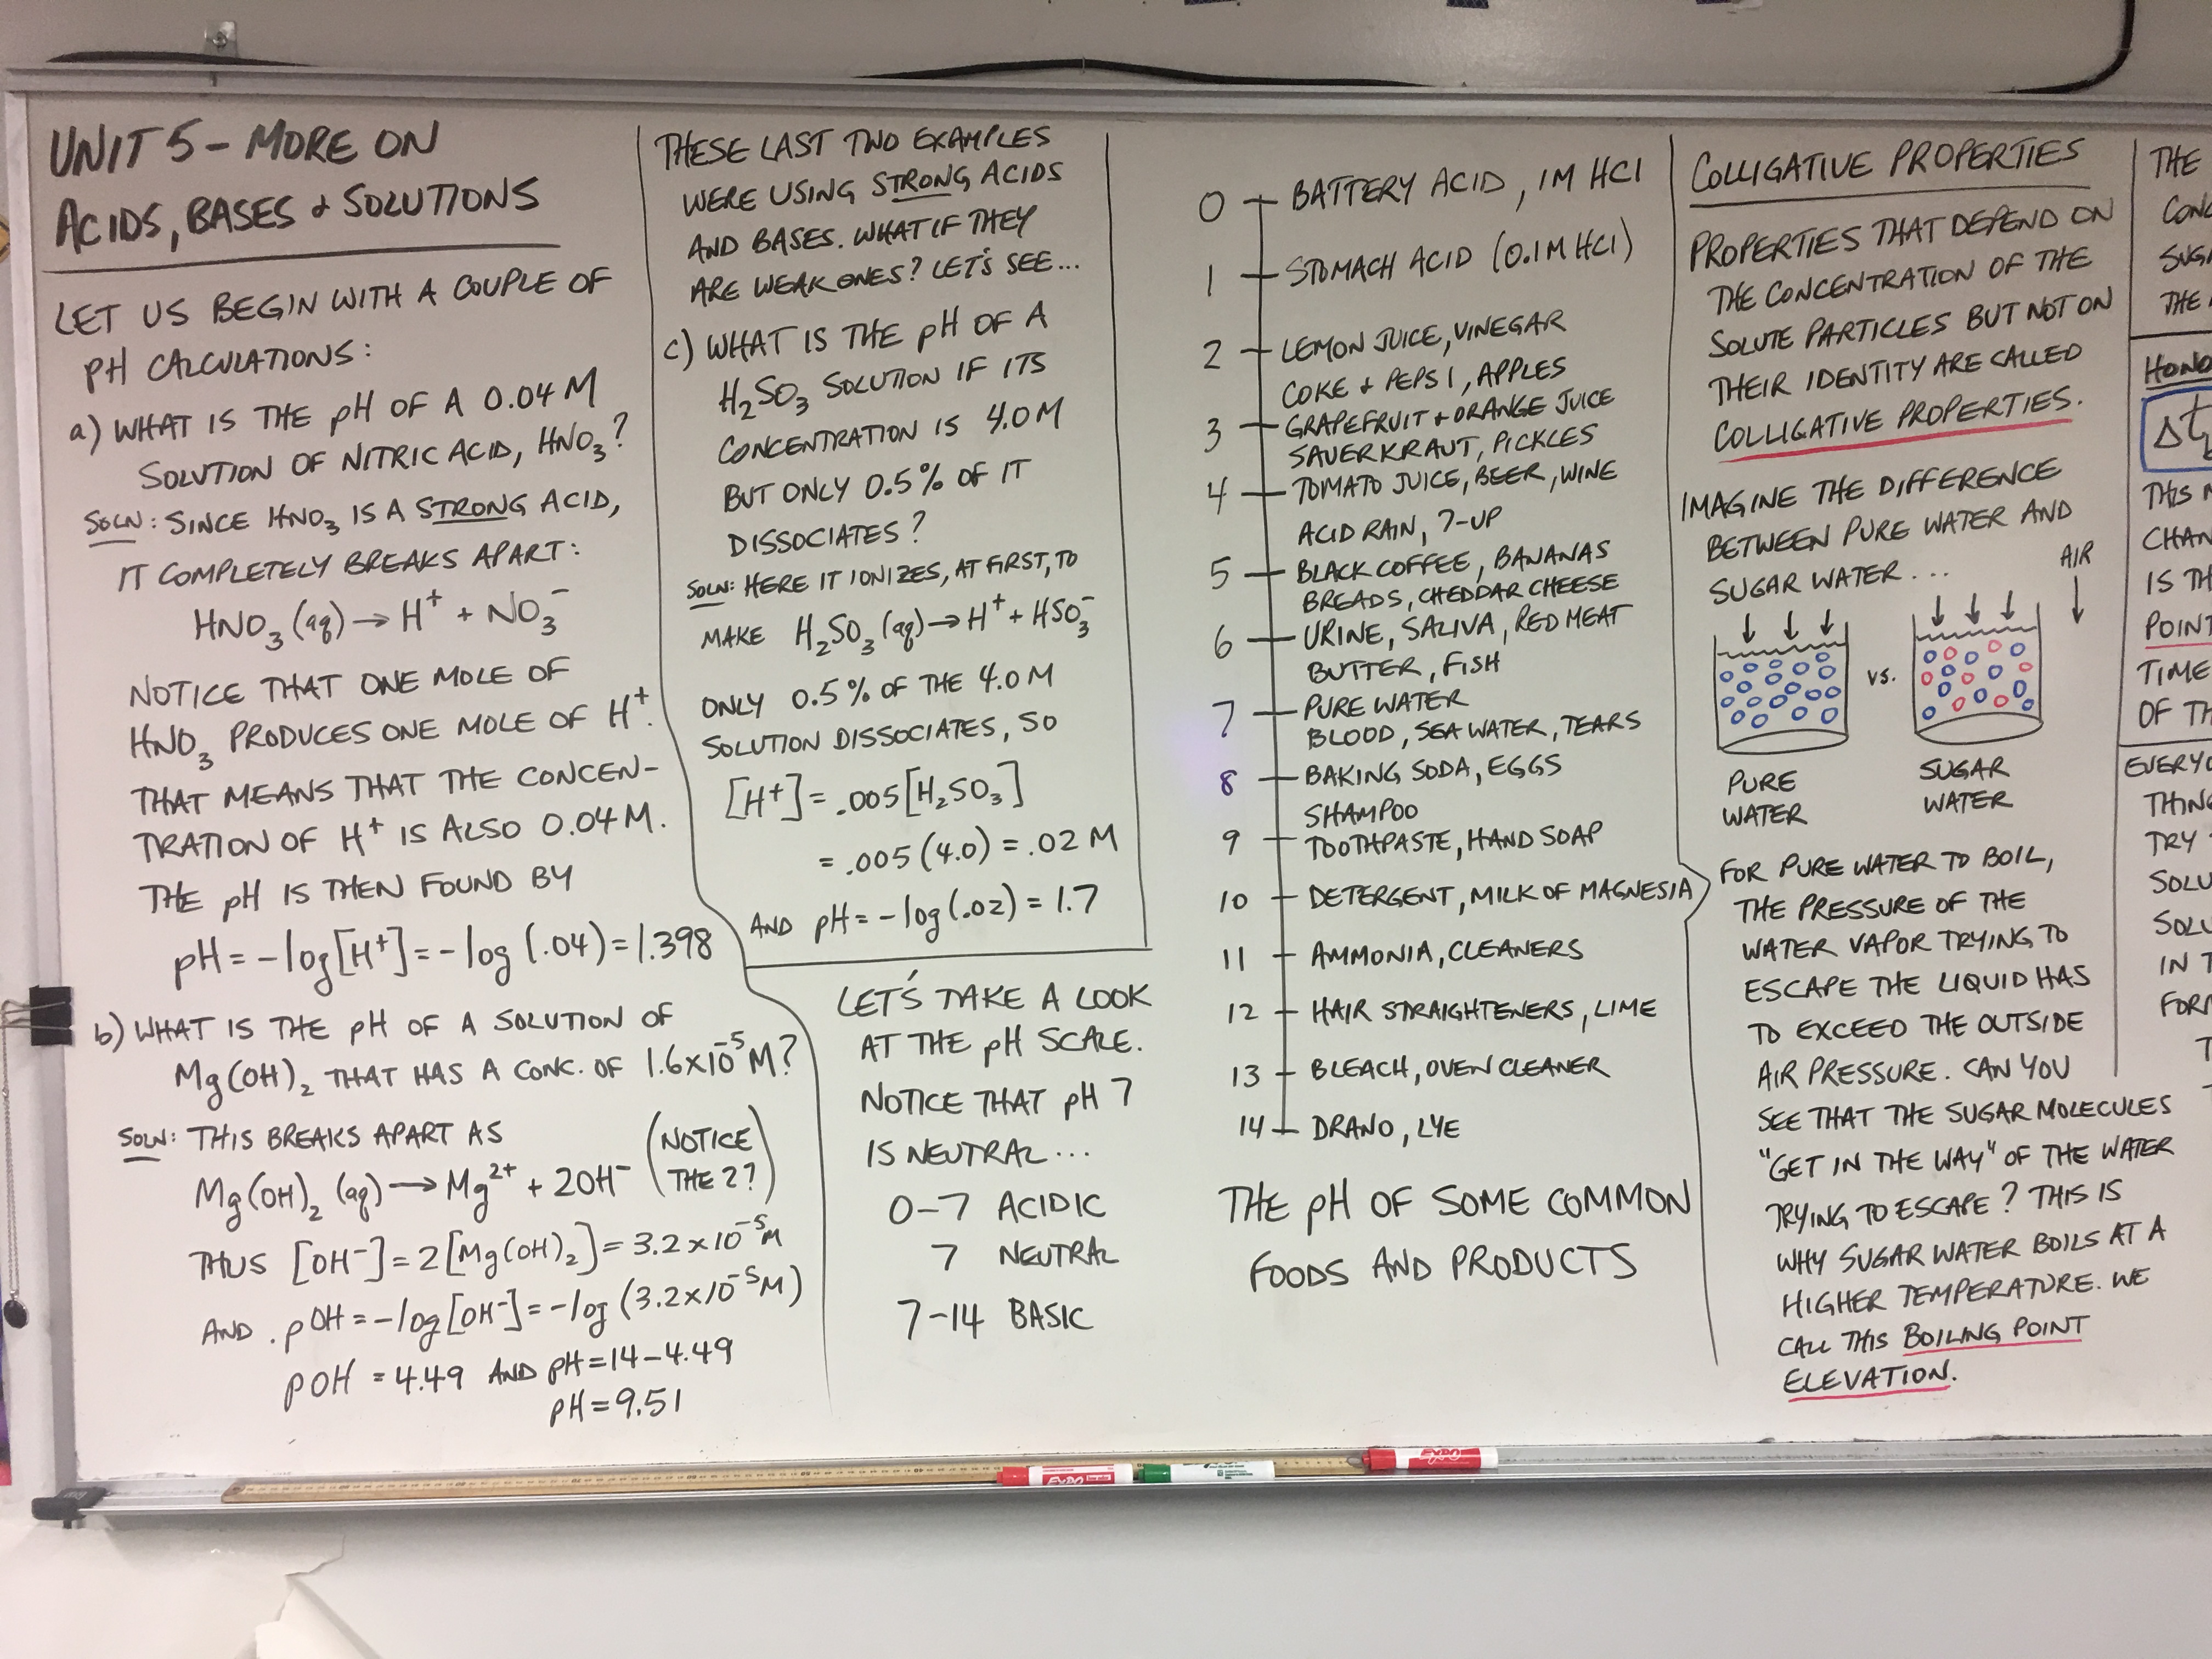 UNIT 5 – MORE ON
ACIDS, BASES & SOLUTIONS
LET US BEGIN WITH A COUPLE OF
pH CALCULATIONS:
a) WHAT IS THE pH OF A 0.04 M
SOLUTION OF NITRIC ACID, HNO₃?
SOLN: SINCE HNO₃ IS A STRONG ACID,
IT COMPLETELY BREAKS APART:
HNO₃ (aq) → H⁺ + NO₃⁻
NOTICE THAT ONE MOLE OF
HNO₃ PRODUCES ONE MOLE OF H⁺.
THAT MEANS THAT THE CONCEN-
TRATION OF H⁺ IS ALSO 0.04 M.
THE pH IS THEN FOUND BY
pH = -log[H⁺] = -log(.04) = 1.398
b) WHAT IS THE pH OF A SOLUTION OF
Mg(OH)₂ THAT HAS A CONC. OF 1.6x10⁻⁵ M?
SOLN: THIS BREAKS APART AS
Mg(OH)₂ (aq) → Mg²⁺ + 2OH⁻
(NOTICE
THE 2?)
THUS [OH⁻] = 2[Mg(OH)₂] = 3.2 x 10⁻⁵ M
AND pOH = -log[OH⁻] = -log(3.2x10⁻⁵M)
pOH = 4.49 AND pH = 14 – 4.49
pH = 9.51
THESE LAST TWO EXAMPLES
WERE USING STRONG ACIDS
AND BASES. WHAT IF THEY
ARE WEAK ONES? LET'S SEE...
c) WHAT IS THE pH OF A
H₂SO₃ SOLUTION IF ITS
CONCENTRATION IS 4.0 M
BUT ONLY 0.5% OF IT
DISSOCIATES?
SOLN: HERE IT IONIZES, AT FIRST, TO
MAKE H₂SO₃ (aq) → H⁺ + HSO₃⁻
ONLY 0.5% OF THE 4.0 M
SOLUTION DISSOCIATES, SO
[H⁺] = .005[H₂SO₃]
= .005(4.0) = .02 M
AND pH = -log(.02) = 1.7
LET'S TAKE A LOOK
AT THE pH SCALE.
NOTICE THAT pH 7
IS NEUTRAL...
0–7 ACIDIC
7 NEUTRAL
7–14 BASIC
0 BATTERY ACID, 1M HCl
1 STOMACH ACID (0.1M HCl)
2 LEMON JUICE, VINEGAR
COKE & PEPSI, APPLES
3 GRAPEFRUIT & ORANGE JUICE
SAUERKRAUT, PICKLES
4 TOMATO JUICE, BEER, WINE
ACID RAIN, 7-UP
5 BLACK COFFEE, BANANAS
BREADS, CHEDDAR CHEESE
6 URINE, SALIVA, RED MEAT
BUTTER, FISH
7 PURE WATER
BLOOD, SEA WATER, TEARS
8 BAKING SODA, EGGS
SHAMPOO
9 TOOTHPASTE, HAND SOAP
10 DETERGENT, MILK OF MAGNESIA
11 AMMONIA, CLEANERS
12 HAIR STRAIGHTENERS, LIME
13 BLEACH, OVEN CLEANER
14 DRANO, LYE
THE pH OF SOME COMMON
FOODS AND PRODUCTS
COLLIGATIVE PROPERTIES
PROPERTIES THAT DEPEND ON
THE CONCENTRATION OF THE
SOLUTE PARTICLES BUT NOT ON
THEIR IDENTITY ARE CALLED
COLLIGATIVE PROPERTIES.
IMAGINE THE DIFFERENCE
BETWEEN PURE WATER AND
SUGAR WATER...
AIR
VS.
PURE
WATER
SUGAR
WATER
FOR PURE WATER TO BOIL,
THE PRESSURE OF THE
WATER VAPOR TRYING TO
ESCAPE THE LIQUID HAS
TO EXCEED THE OUTSIDE
AIR PRESSURE. CAN YOU
SEE THAT THE SUGAR MOLECULES
"GET IN THE WAY" OF THE WATER
TRYING TO ESCAPE? THIS IS
WHY SUGAR WATER BOILS AT A
HIGHER TEMPERATURE. WE
CALL THIS BOILING POINT
ELEVATION.
THE
CONC
SUGA
THE
HONO
Δt
THIS
CHAN
IS TH
POINT
TIME
OF TH
EVERYO
THING
TRY
SOLU
SOLU
IN T
FORM
EXPO
EXPO